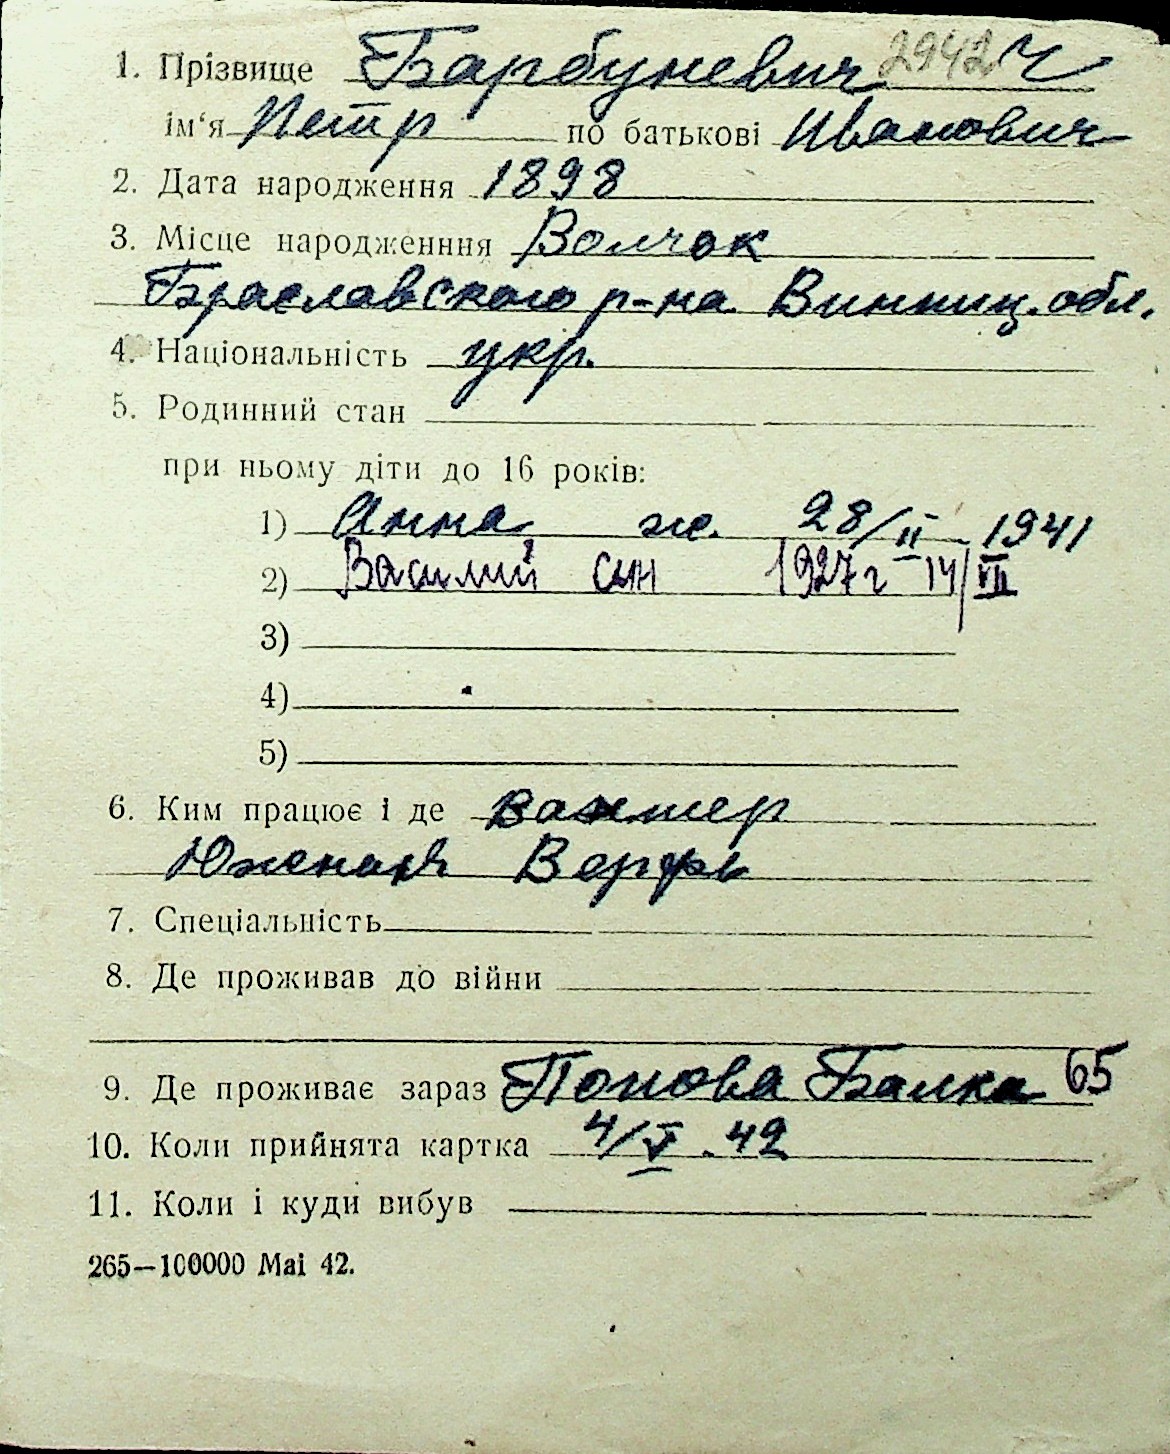 1. Прізвище Барбуневич 2942 Ч
ім‘я Петр по батькові Иванович
2. Дата народження 1898
3. Місце народженння Волчок
Браславского р-на Винниц. обл.
4. Національність укр.
5. Родинний стан
при ньому діти до 16 років:
1) Анна ж. 28/II 1941
2) Василий сын 1927г 14/VII
3)
4)
5)
6. Ким працює і де вахтер
Южная Верфь
7. Спеціальність
8. Де проживав до війни
9. Де проживає зараз Попова Балка 65
10. Коли прийнята картка 4/V. 42
11. Коли і куди вибув
265—100000 Mai 42.